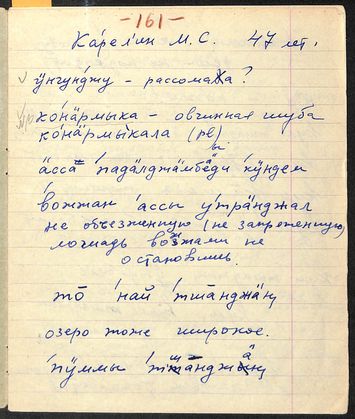 -161-
Карелин М.С. 47 лет.
ӱнгунджу - рассомаха?
ко́нӓрмыка - овчинная шуба
ко́нӓрмы́кала (pl)
ӓсса 'падӓлджӓмбӓди 'кӱндем
'вожжан 'ассы у'тра́нджал
не объезженную (не запряженную)
лошадь возжами не
остановишь.
тӧ 'най 'тшӓнджӓң
озеро тоже широкое.
'пӱммы